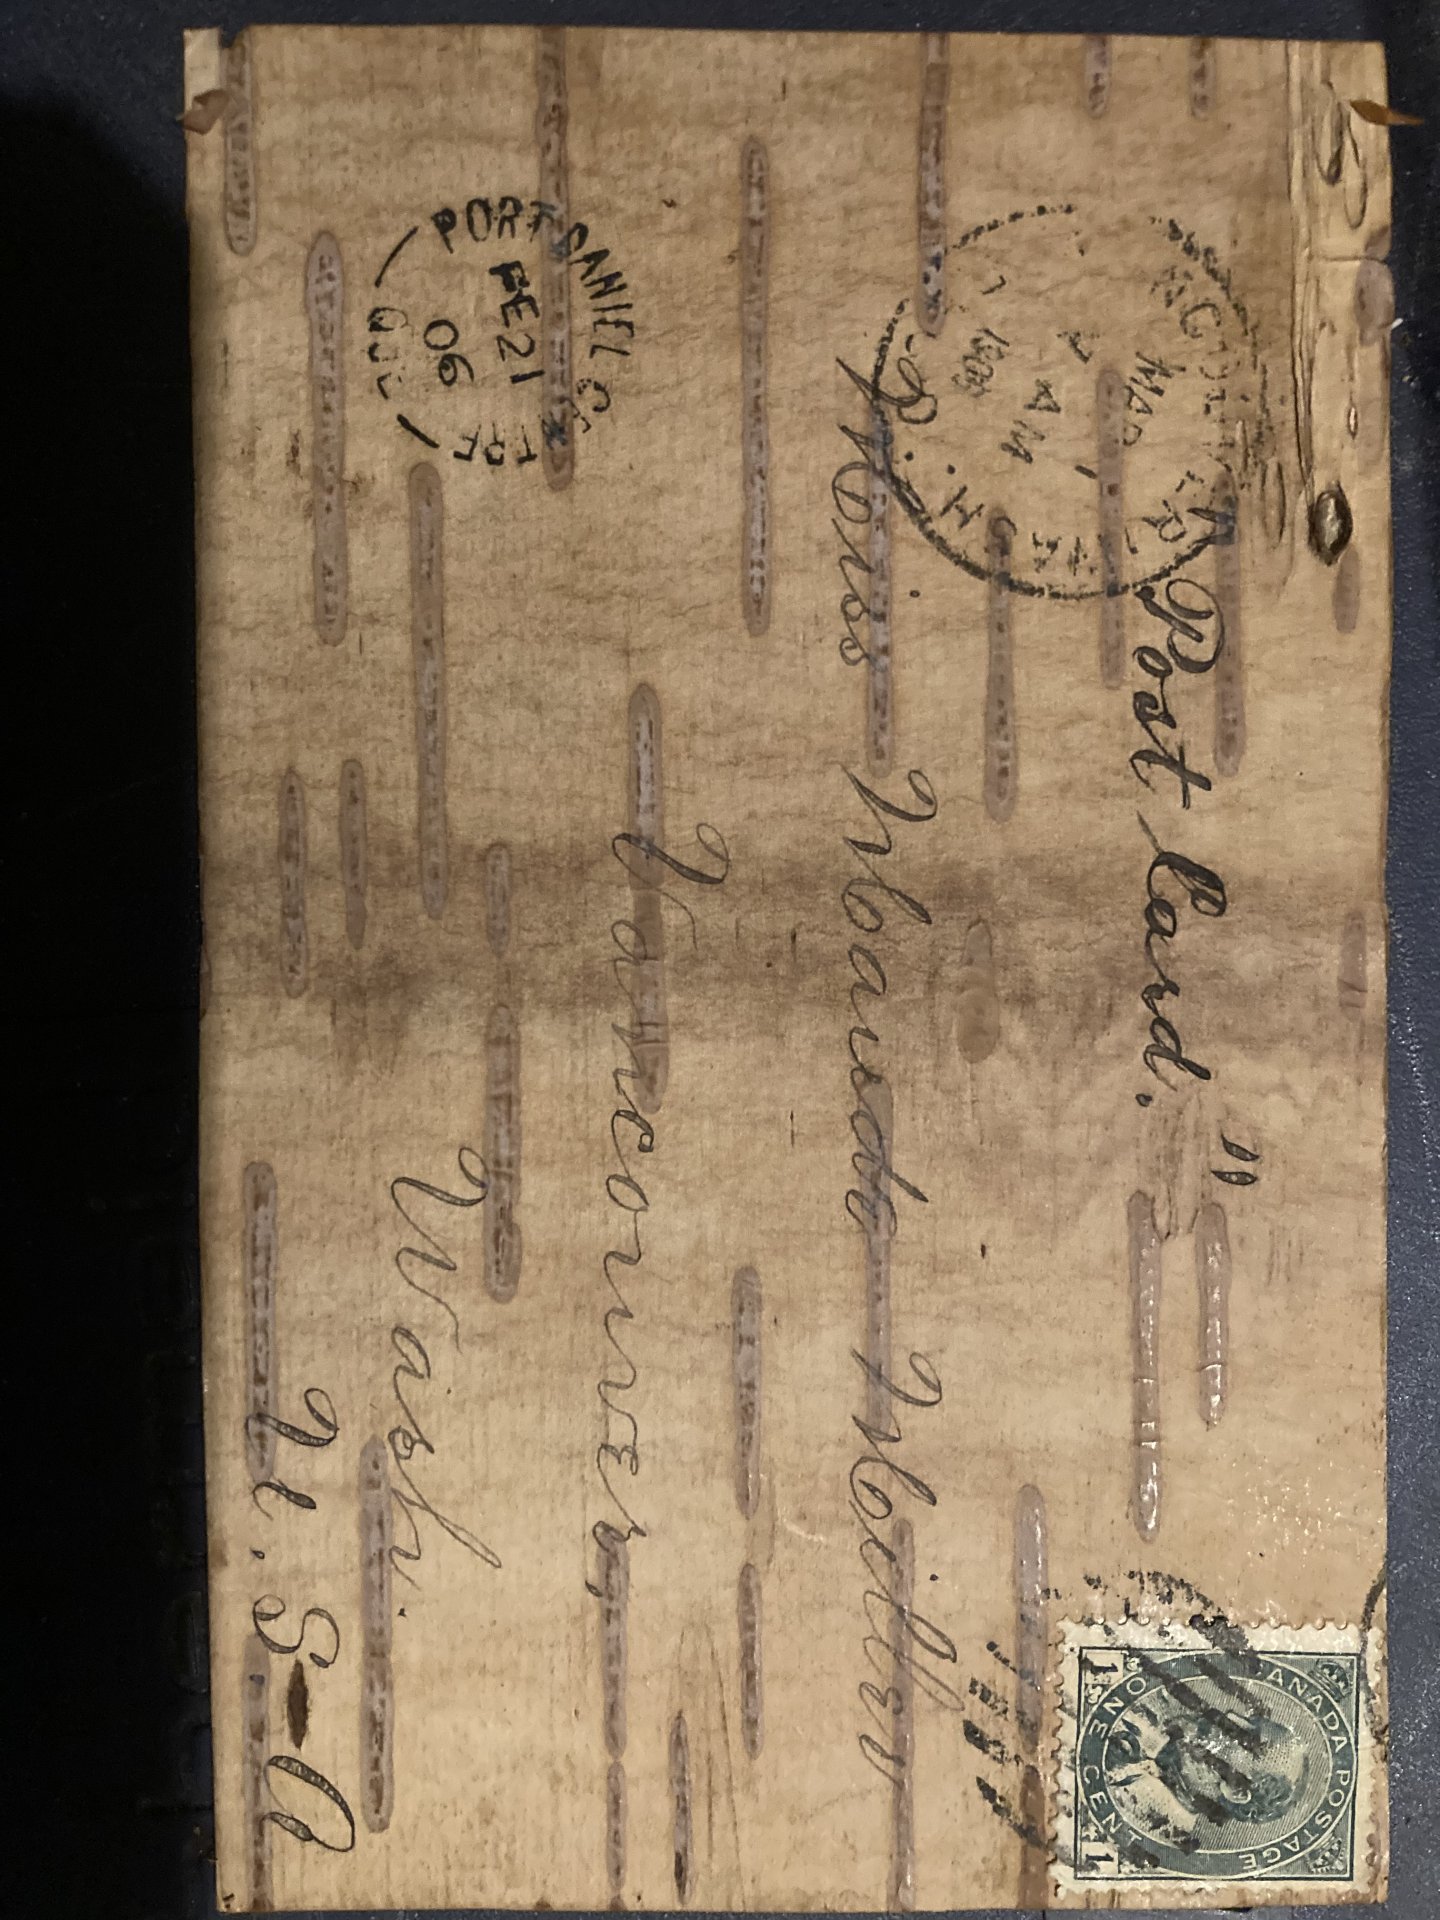 " Post Card. "
Miss Maude
Vancouver,
Wash.
U.S-A
PORT DANIEL CE
FE 21
06
QUE
MAR 1
AM
1906
WASH.
CANADA POSTAGE
1 ONE CENT 1